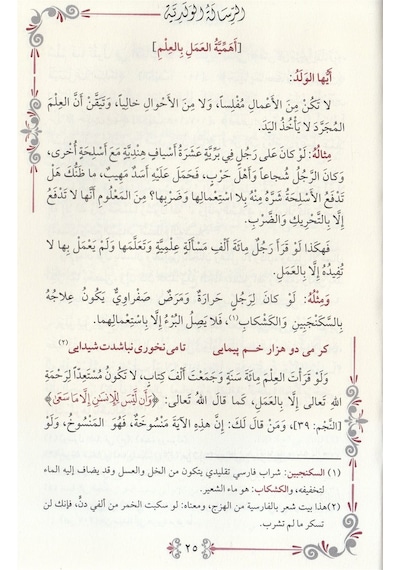 الرسالة الولدية
[أَهَمِّيَّةُ العَمَلِ بِالعِلْمِ]
أَيُّها الوَلَدُ:
لا تَكُنْ مِنَ الأَعْمالِ مُفْلِساً، وَلا مِنَ الأَحْوالِ خالِياً، وَتَيَقَّنْ أَنَّ العِلْمَ
المُجَرَّدَ لا يَأْخُذُ اليَدَ.
مِثالُهُ: لَوْ كانَ عَلى رَجُلٍ في بَرِّيَّةٍ عَشَرَةُ أَسْيافٍ هِنْدِيَّةٍ مَعَ أَسْلِحَةٍ أُخْرى،
وَكانَ الرَّجُلُ شُجاعاً وَأَهْلَ حَرْبٍ، فَحَمَلَ عَلَيْهِ أَسَدٌ مَهِيبٌ، ما ظَنُّكَ هَلْ
تَدْفَعُ الأَسْلِحَةُ شَرَّهُ مِنْهُ بِلا اسْتِعْمالِها وَضَرْبِها؟ مِنَ المَعْلُومِ أَنَّها لا تَدْفَعُ
إِلَّا بِالتَّحْرِيكِ وَالضَّرْبِ.
فَهكَذا لَوْ قَرَأَ رَجُلٌ مِائَةَ أَلْفِ مَسْأَلَةٍ عِلْمِيَّةٍ وَتَعَلَّمَها وَلَمْ يَعْمَلْ بِها لا
تُفِيدُهُ إِلَّا بِالعَمَلِ.
وَمِثْلُهُ: لَوْ كانَ لِرَجُلٍ حَرارَةٌ وَمَرَضٌ صَفْراوِيٌّ يَكُونُ عِلاجُهُ
بِالسَّكَنْجَبِينِ وَالكَشْكابِ(١)، فَلا يَصِلُ البُرْءُ إِلَّا بِاسْتِعْمالِهِما.
كر می دو هزار خم پیمایی تامی نخوری نباشدت شیدایی (٢)
وَلَوْ قَرَأْتَ العِلْمَ مِائَةَ سَنَةٍ وَجَمَعْتَ أَلْفَ كِتابٍ، لا تَكُونُ مُسْتَعِدّاً لِرَحْمَةِ
اللهِ تَعالى إِلَّا بِالعَمَلِ، كَما قالَ اللهُ تَعالى: ﴿وَأَن لَّيْسَ لِلْإِنسَٰنِ إِلَّا مَا سَعَىٰ﴾
[النَّجْم: ٣٩]، وَمَنْ قالَ لَكَ: إِنَّ هذِهِ الآيَةَ مَنْسُوخَةٌ، فَهُوَ المَنْسُوخُ، وَلَوْ
(١) السكنجبين: شراب فارسي تقليدي يتكون من الخل والعسل وقد يضاف إليه الماء
لتخفيفه، والكشكاب: هو ماء الشعير.
(٢) هذا بيت شعر بالفارسية من الهزج، ومعناه: لو سكبت الخمر من ألفي دنٍّ، فإنك لن
تسكر ما لم تشرب.
٢٥